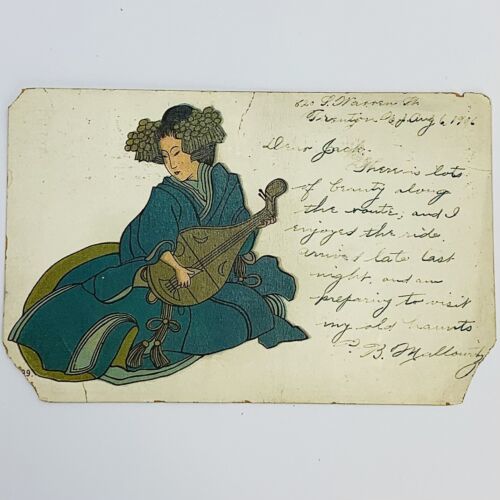 620 S. Warren St
Trenton NJ Aug 6, 1906
Dear Jack.
There is lots
of beauty along
the route, and I
enjoyed the ride.
arrived late last
night, and am
preparing to visit
my old haunts
B.
99